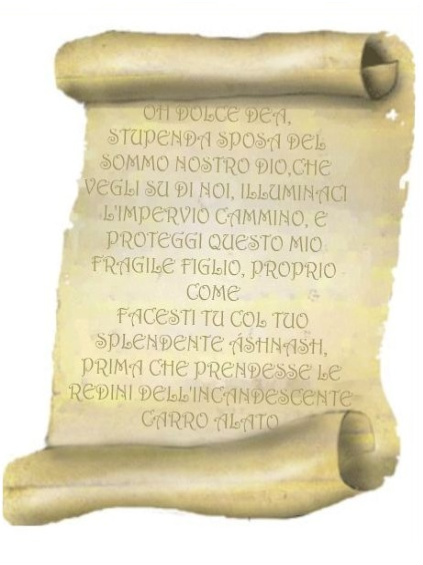 OH DOLCE DEA,
STUPENDA SPOSA DEL
SOMMO NOSTRO DIO,CHE
VEGLI SU DI NOI, ILLUMINACI
L'IMPERVIO CAMMINO, E
PROTEGGI QUESTO MIO
FRAGILE FIGLIO, PROPRIO
COME
FACESTI TU COL TUO
SPLENDENTE ÁSHNASH,
PRIMA CHE PRENDESSE LE
REDINI DELL'INCANDESCENTE
CARRO ALATO